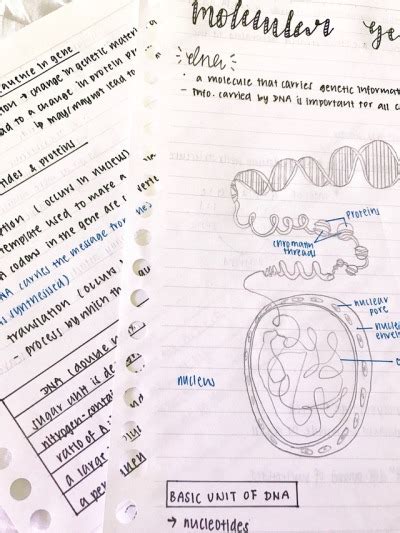 molecular ge
dna
· a molecule that carries genetic informat
- info. carried by DNA is important for all c
proteins
chromatin
threads
nuclear
pore
nucle
envel
c
nucleus
BASIC UNIT OF DNA
→ nucleotides
sequence in gene
tion → change in genetic materia
ad to a change in protein pr
ip may/may not lead to
tides & proteins
ption (occurs in nucleus)
template used to make a
A codons in the gene are
NA carries the message from
is synthesised)
translation (occurs
- process by which th
DNA
sugar unit is de
nitrogen-contai
ratio of A
a large
a per